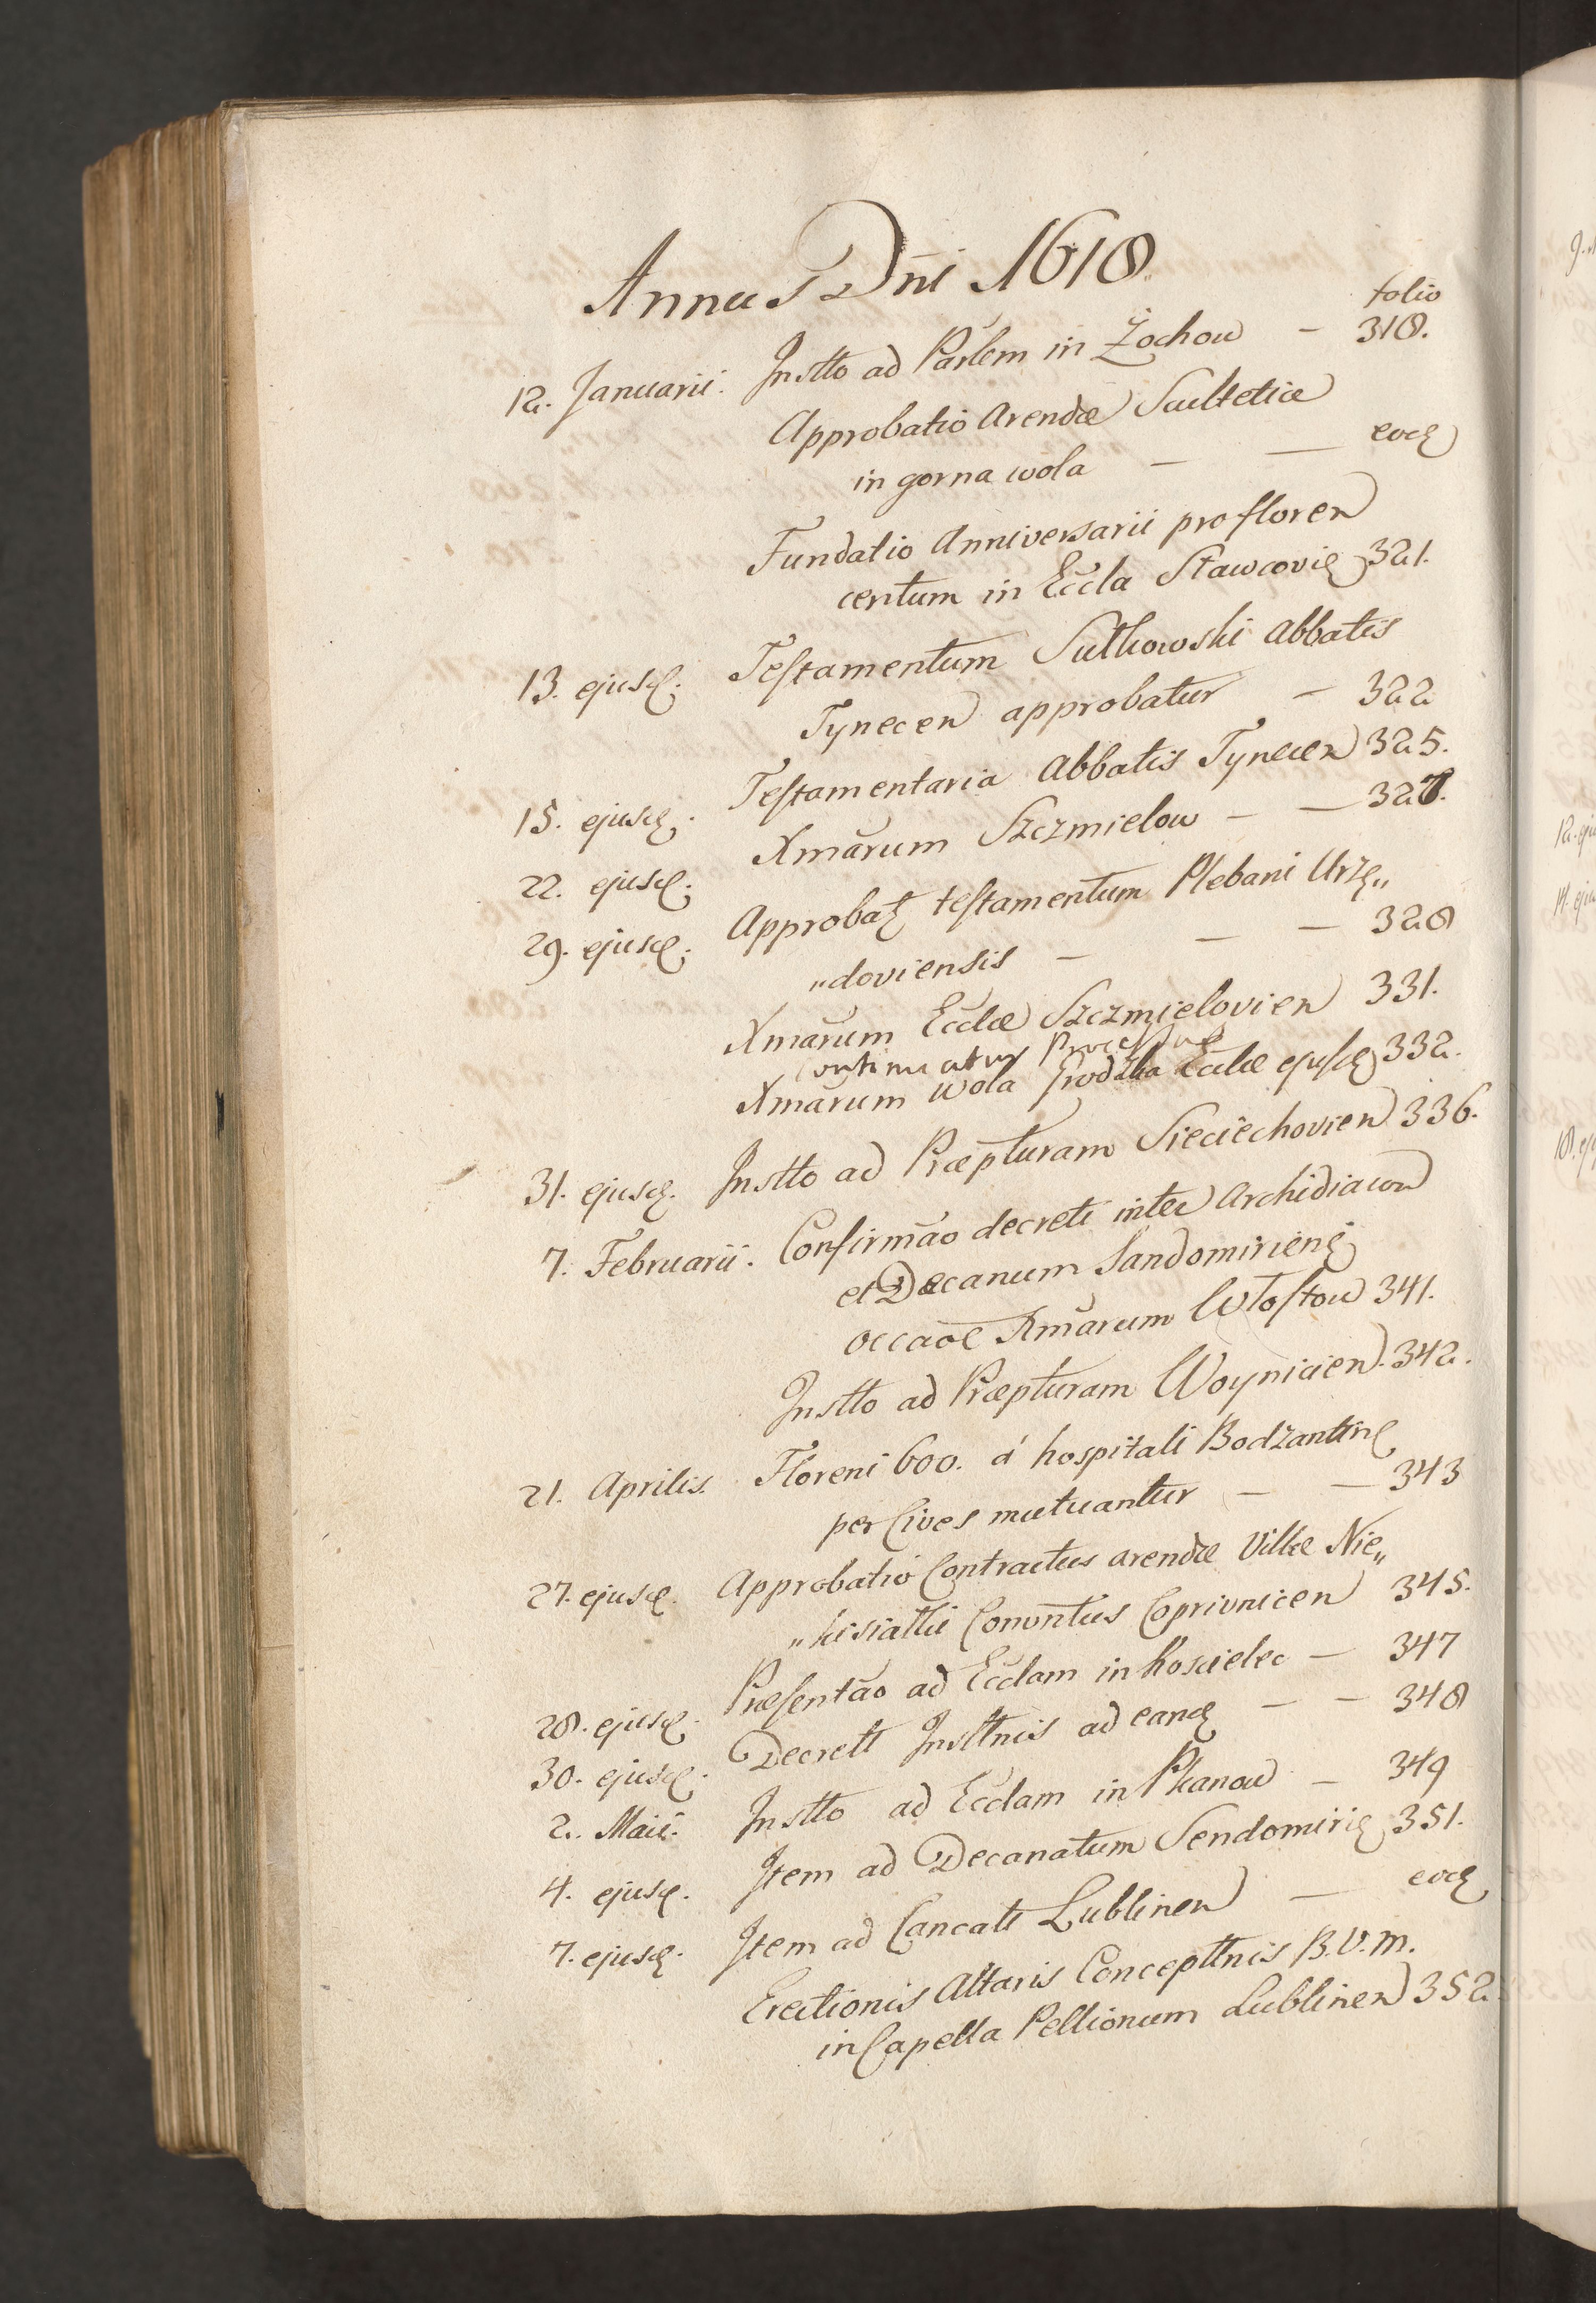 Annus Dñi 1618.
folio
12. Januarii. Instto ad Parlem in Żochow - 318.
Approbatio Arendæ Scultetiæ
in gorna wola - - eodę
Fundatio Anniversarii pro floren
centum in Eccla Sławcovię 321.
13. ejusd. Testamentum Sułkowski Abbatis
Tynecen approbatur - 322
15. ejusd. Testamentaria Abbatis Tynecen 325.
22. ejusd. Xmarum Szczmielow - - 327.
29. ejusd. Approbatę testamentum Plebani Urzę„
„doviensis - - - 328
Xmarum Ecclæ Szczmielovien 331.
Continuatur Processus
Xmarum wola Ecclæ ejusdę 332.
31. ejusd. Instto ad Præpturam Sieciechovien 336.
7. Februarii. Confirmao decreti inter Archidiacon
et Decanum Sandomirienę
occaõe Xmarum Włostow 341.
Instto ad Præpturam Woynicien. 342.
21. Aprilis. Floreni 600. á hospitali Bodzantinę
per Cives mutuantur - - 343
27. ejusd. Approbatio Contractus arendæ Villæ Nie„
Convntus Coprivnicen 345.
28. ejusd. Præsentao ad Ecclam in Koscielec - 347
30. ejusd. Decrett Insttnis ad eandę - - 348
2. Maii. Instto ad Ecclam in Pkanow - 349
4. ejusd. Item ad Decanatum Sendomirię 351.
7. ejusd. Item ad Cancatt Lublinen - eodę
Erectionis Altaris Concepttnis B. V. M.
in Capella Pellionum Lublinen 352.